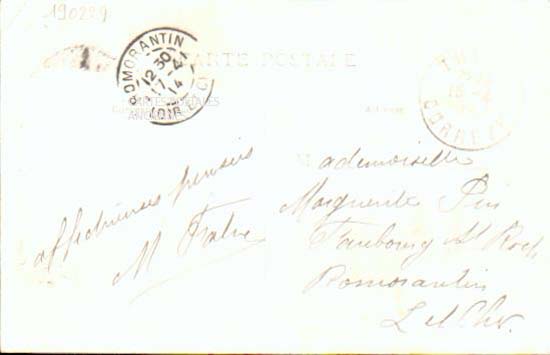 190229
CARTE POSTALE
ROMORANTIN
12 30
17 - 4
14
LOIR-ET-CH
CARTES POSTALES
ANCIENNES
CORRÈZE
affectueuses pensées
M
Mademoiselle
Marguerite
Faubourg St Roch
Romorantin
L et Cher